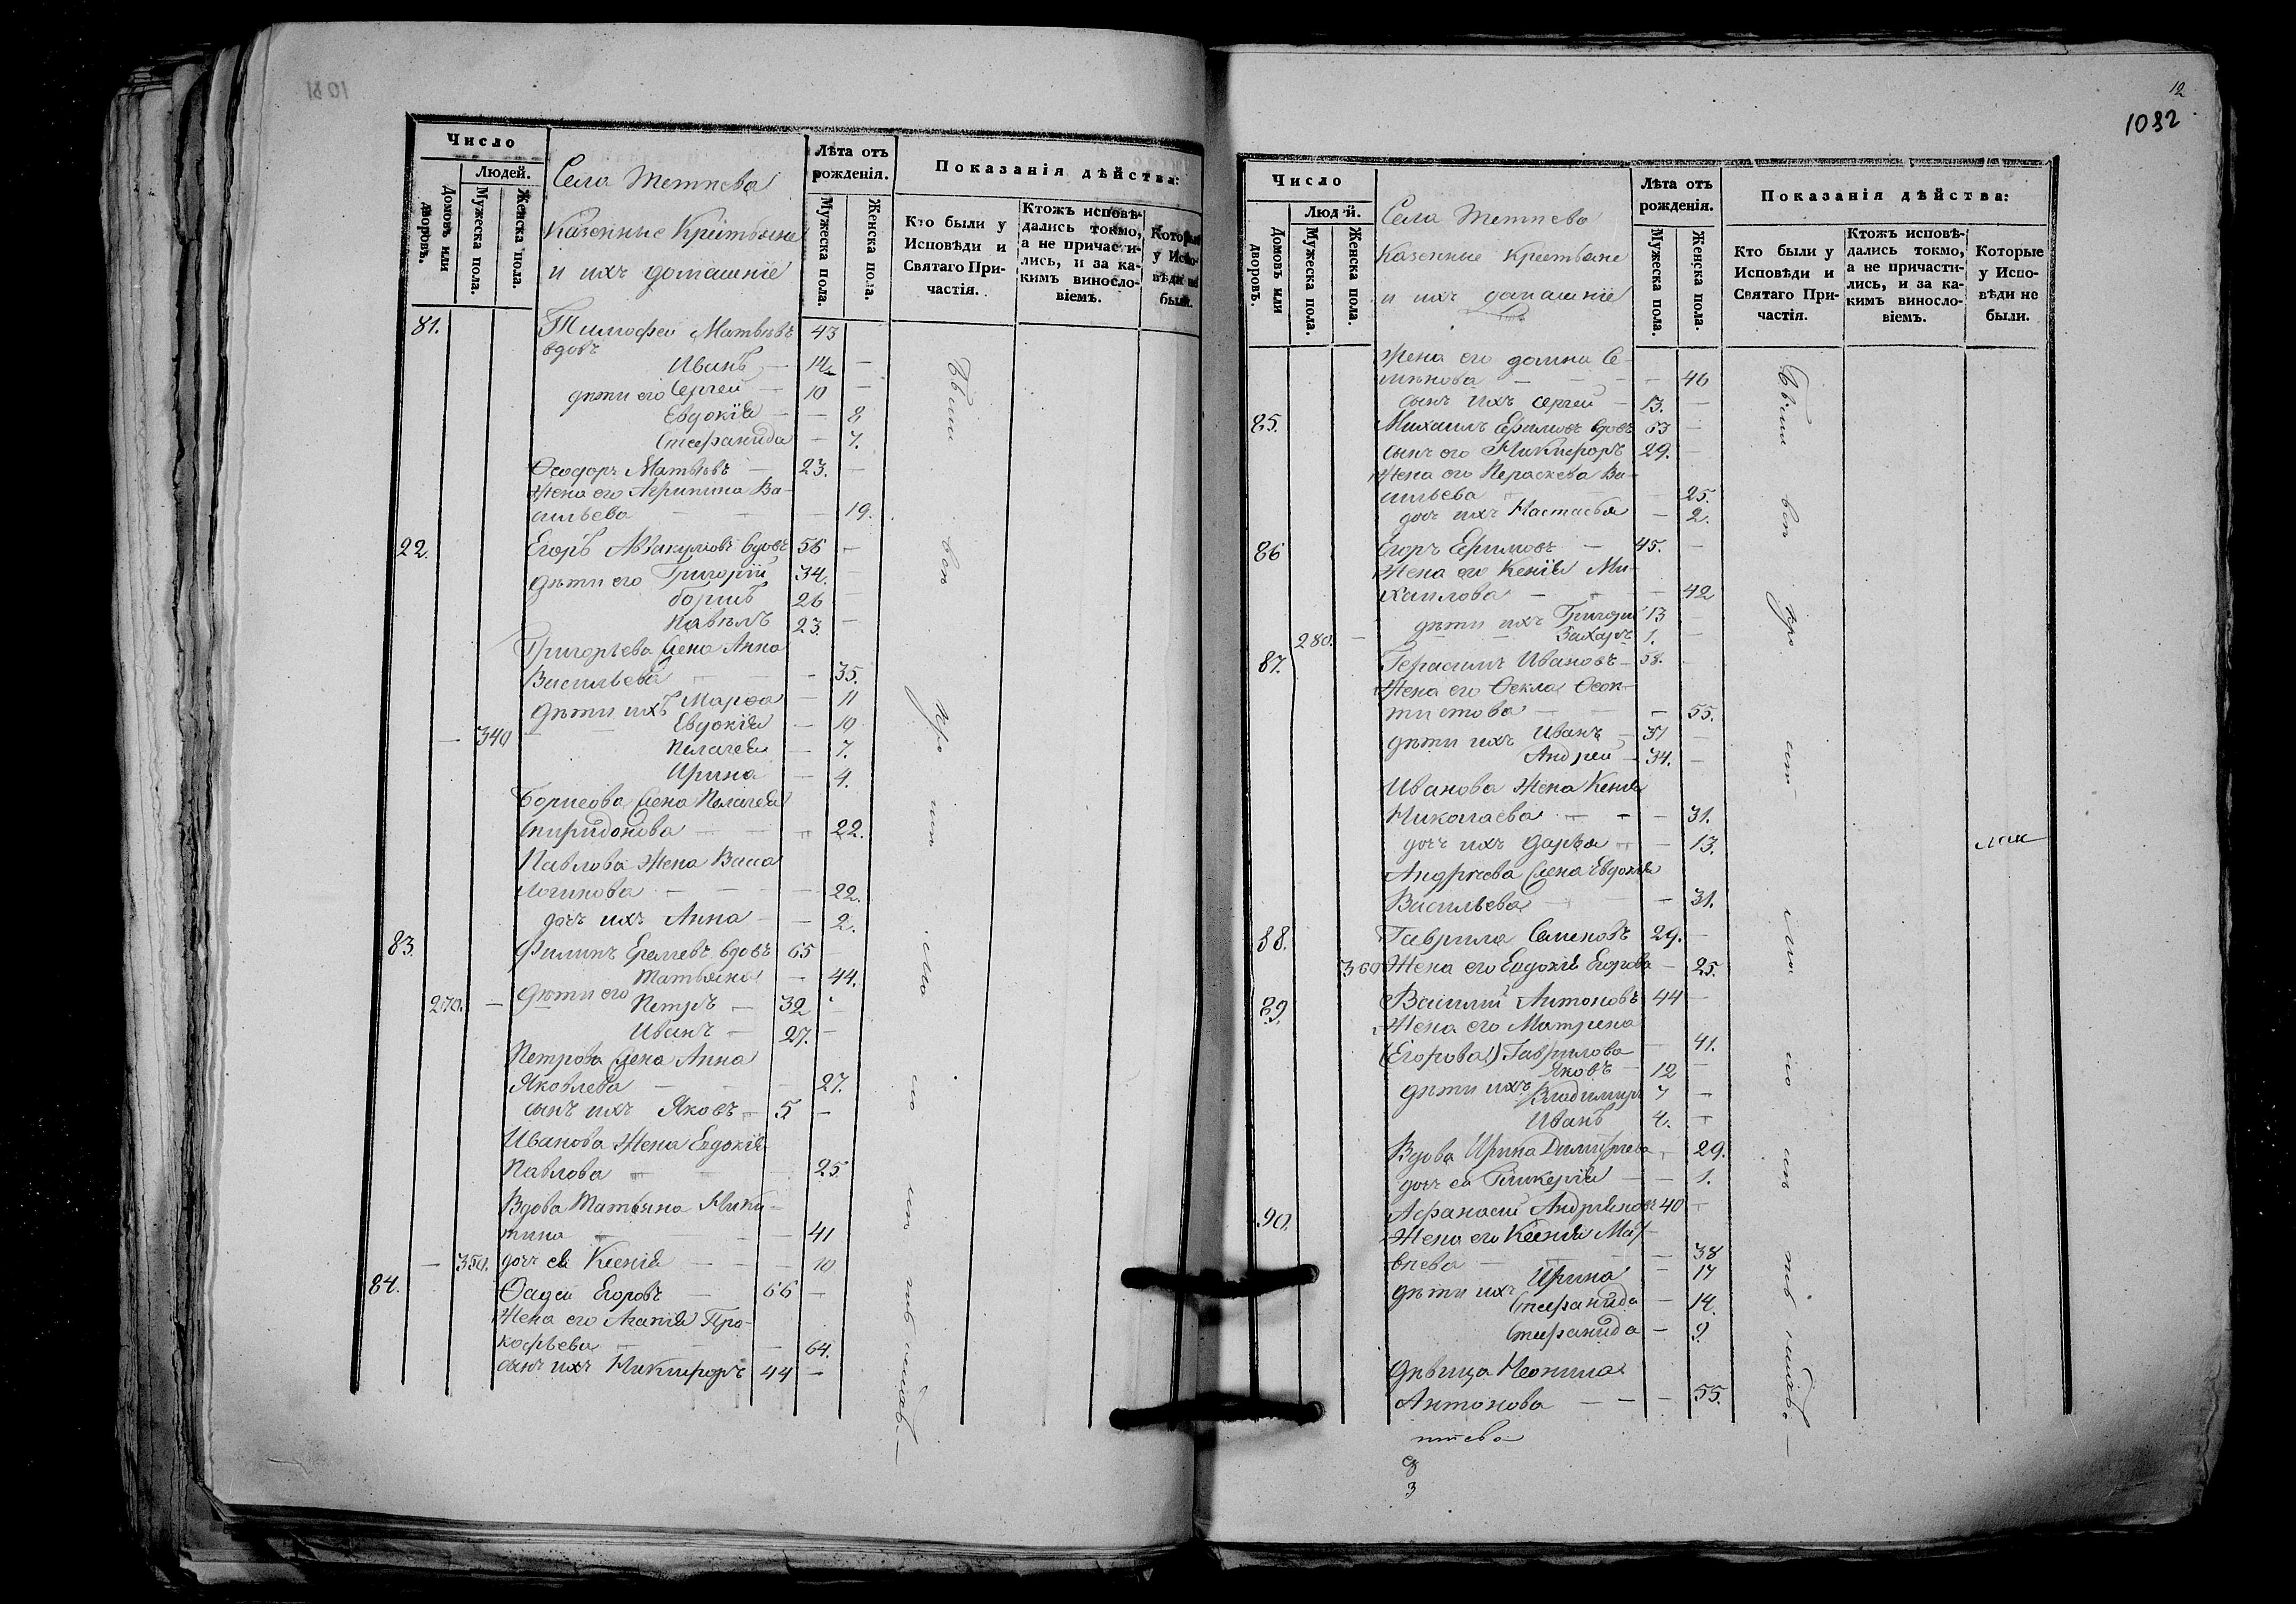 Число
Людей.
Домовъ или дворовъ.
Мужеска пола.
Женска пола.
Села Тетпева
Казенные Крестьяне
и ихъ домашніе
Лѣта отъ рожденія.
Мужеска пола.
Женска пола.
Показанія дѣйства:
Кто были у Исповѣди и Святаго Причастія.
Ктожъ исповѣдались токмо, а не причастились, и за какимъ винословіемъ.
Которые у Исповѣди не были.
81. Тимофей Матвѣевъ 43
вдовъ
Иванъ — 14 —
дѣти его Сергей — 10 —
Евдокія — — 8
Стефанида — 7.
Ѳеодоръ Матвѣевъ — 23. —
Жена его Агрипина Ва-
сильева — — — 19.
22. Егоръ Аввакумовъ вдовъ 56 —
дѣти его Григорій 34. —
Борисъ 26 —
Павелъ 23. —
Григорьева жена Анна
Васильева — — — 35.
дѣти ихъ Марѳа — 11
Евдокія — 10
— 340 Пелагея — 7.
Ирина — 4.
Борисова жена Пелагея
Спиридонова — — — 22.
Павлова Жена Васса
Логинова — — — 22.
дочь ихъ Анна — — 2.
83. Филипъ Ермеевъ вдовъ 65 —
Татьяна — 44.
270. — дѣти его Петръ — 32
Иванъ — 27. —
Петрова жена Анна
Яковлева — — 27.
сынъ ихъ Яковъ — 5 —
Иванова Жена Евдокія
Павлова — — — 25
Вдова Татьяна Ники-
тина — — — 41
— 350. дочь ея Ксенія — — — 10
84. Ѳадей Егоровъ — 66 —
Жена его Агапія Про-
кофьева — — — 64.
сынъ ихъ Никифоръ 44 —
Были
вси
при
ст
12
1032
Число
Людей.
Домовъ или дворовъ.
Мужеска пола.
Женска пола.
Села Тетпева
Казенные Крестьяне
и ихъ домашніе
Лѣта отъ рожденія.
Мужеска пола.
Женска пола.
Показанія дѣйства:
Кто были у Исповѣди и Святаго Причастія.
Ктожъ исповѣдались токмо, а не причастились, и за какимъ винословіемъ.
Которые у Исповѣди не были.
Жена его домна Се-
менова — — — 46
сынъ ихъ Сергей — 13. —
85. Михаилъ Ефимовъ вдовъ 53 —
сынъ его Никифоръ 29. —
Жена его Пераскева Ва-
сильева — — — 25.
дочь ихъ Настасья — 2.
86 Егоръ Ефимовъ — 45. —
Жена его Ксенія Ми-
хаилова — — — 42
дѣти ихъ Григорій 13 —
280. — Захаръ 1. —
87. Герасимъ Ивановъ — 58. —
Жена его Ѳекла Ѳеок-
тистова — — — 55.
дѣти ихъ Иванъ — 37 —
Андрей — 34. —
Иванова Жена Ксенія
Николаева — — — 31.
дочь ихъ Дарья — — 13.
Андреева жена Евдокія
Васильева — — — 31.
88. Гаврила Семеновъ 29. —
360 Жена его Евдокія Егорова — 25.
89. Василий Антоновъ 44 —
Жена его Матрена
(Егорова) Гаврилова — 41.
Яковъ — 12 —
дѣти ихъ Владимиръ 7 —
Иванъ 4. —
Вдова Ирина Димитріева — 29.
дочь ея Гликерія — — 1.
90. Афанасій Андріяновъ 40 —
Жена его Ксенія Мат-
вѣева — — — 38
дѣти ихъ Ирина — 17
Стефанида — 14.
Стефанида — 9
Дѣвица Неонила
Антонова — — — 55.
Были
вси
при
ст